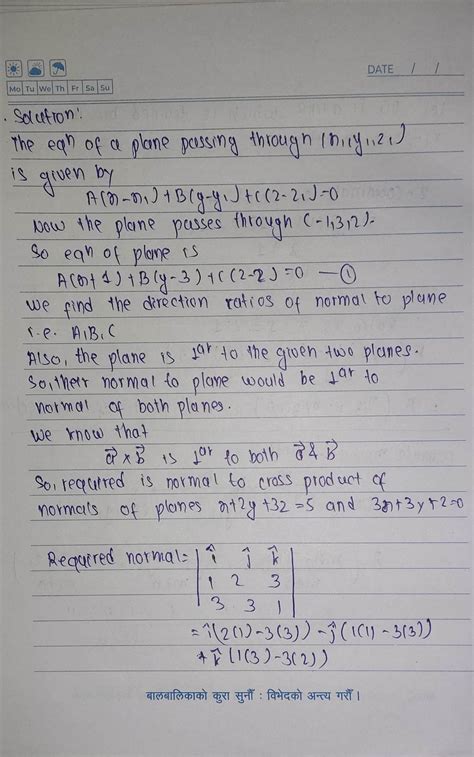 DATE / /
Mo Tu We Th Fr Sa Su
. Solution:
The eqn of a plane passing through (x₁,y₁,z₁)
is given by
A(x-x₁)+B(y-y₁)+C(z-z₁)=0
Now the plane passes through (-1,3,2).
So eqn of plane is
A(x+1)+B(y-3)+C(z-2)=0 —①
We find the direction ratios of normal to plane
i.e. A,B,C
Also, the plane is ⊥ar to the given two planes.
So, their normal to plane would be ⊥ar to
normal of both planes.
We know that
a⃗ × b⃗ is ⊥ar to both a⃗ & b⃗
So, required is normal to cross product of
normals of planes x+2y+3z=5 and 3x+3y+z=0
Required normal= | î ĵ k̂ |
| 1 2 3 |
| 3 3 1 |
= î(2(1)-3(3)) - ĵ(1(1)-3(3))
+ k̂(1(3)-3(2))
बालबालिकाको कुरा सुनौं : विभेदको अन्त्य गरौं ।